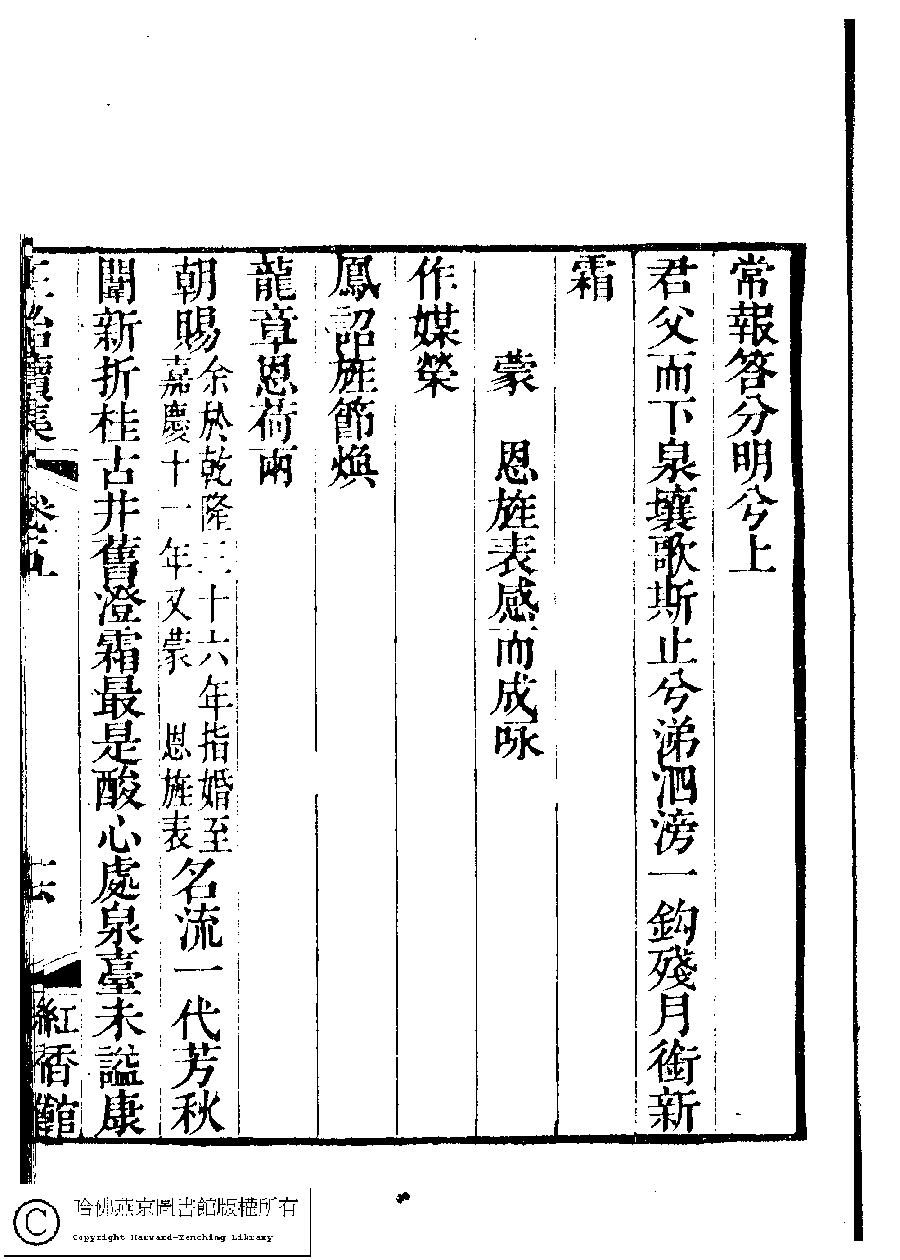 常報答分明兮上
君父而下泉壤歌斯止兮涕泗滂一鈎殘月銜新
霜
蒙　恩旌表感而成咏
作媒榮
鳳詔旌節煥
龍章恩荷兩
朝賜余於乾隆三十六年指婚至嘉慶十一年又蒙　恩旌表名流一代芳秋
闈新折桂古井舊澄霜最是酸心處泉臺未謚康
正始續集　卷五　　紅香館
哈佛燕京圖書館版權所有
Copyright Harvard-Yenching Library